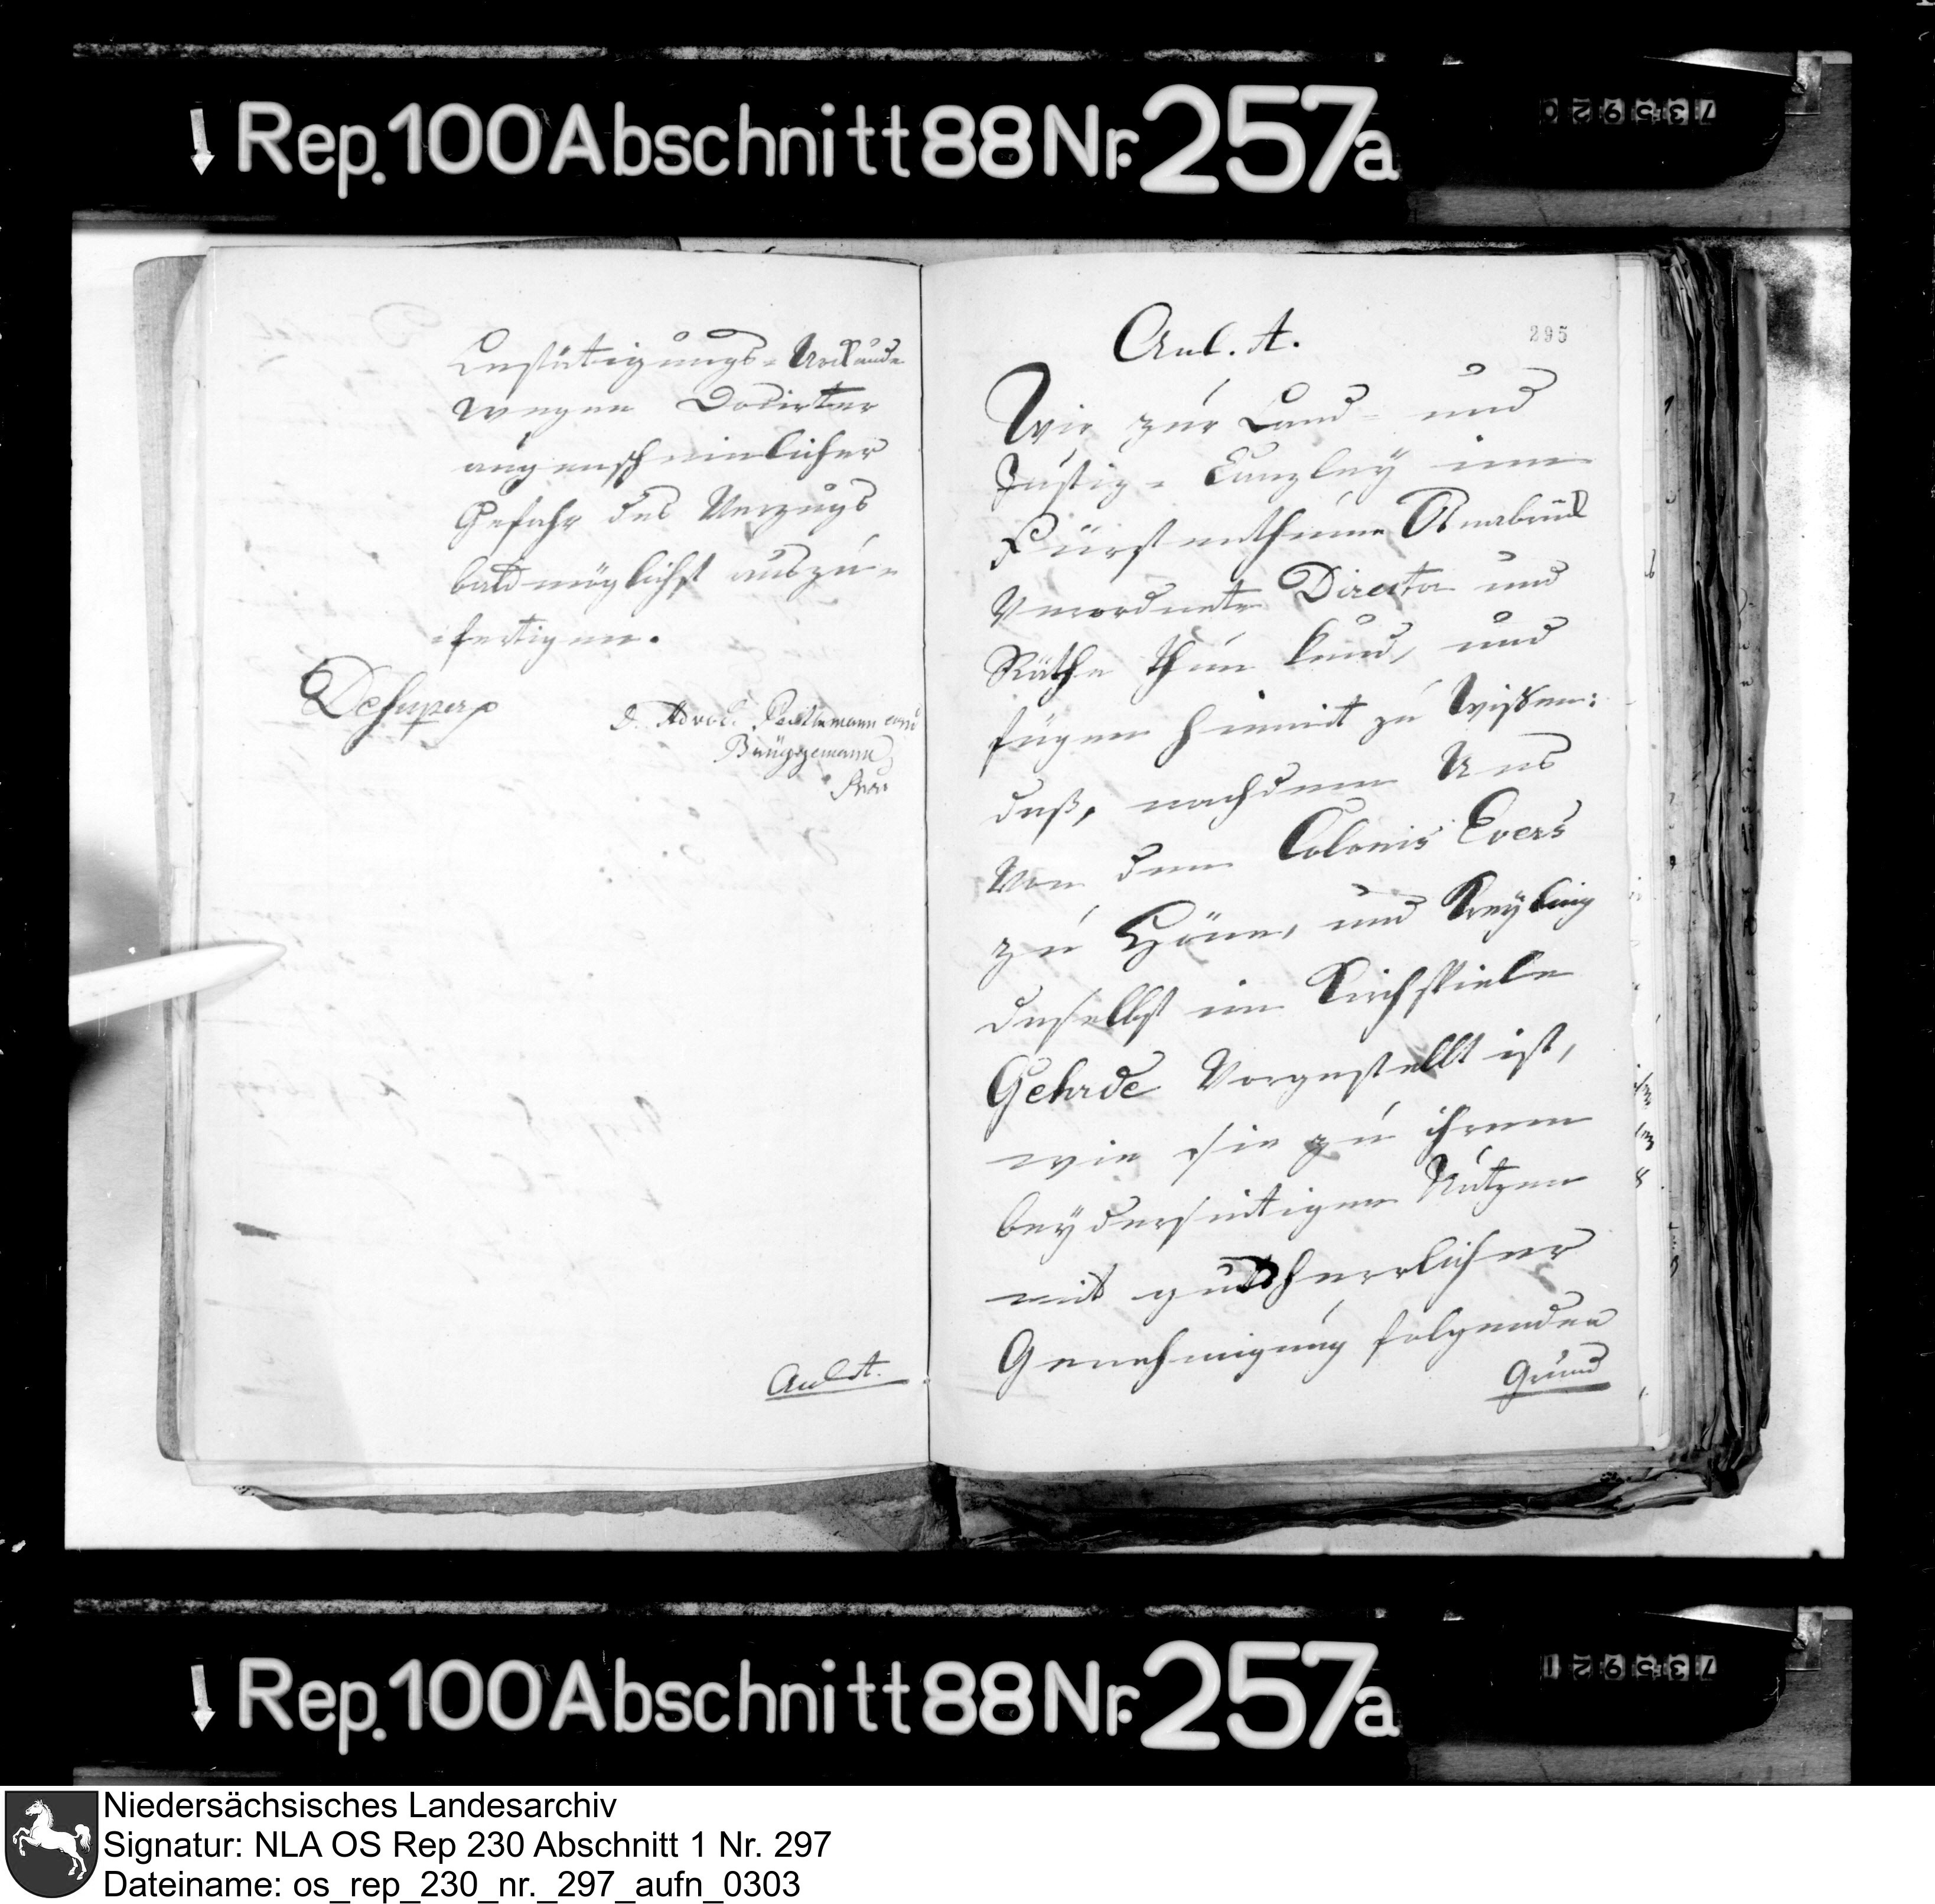 Rep. 100 Abschnitt 88 Nr. 257a
735920
Bestätigungs-Urkunde
wegen
augenscheinlicher
Gefahr des Verzugs
baldmöglichst auszu-
fertigen.
Desuper p
D. Advoc.
Brüggemann
Anl. A.
295
Anl. A.
Wir zur Land- und
Justiz-Canzley im
Fürstenthum Osnabrück
Verordnete Director und
Räthe thun kund, und
fügen hiemit zu wißen:
daß, nachdem Uns
Von dem Colonis Evers
zu Höne, und Kreyling
daselbst im Kirchspiele
Gehrde Vorgestellt ist,
wie sie zu ihrem
beyderseitigen Nutzen
mit gutsherrlicher
Genehmigung folgenden
Grund
Rep. 100 Abschnitt 88 Nr. 257a
735921
Niedersächsisches Landesarchiv
Signatur: NLA OS Rep 230 Abschnitt 1 Nr. 297
Dateiname: os_rep_230_nr._297_aufn_0303